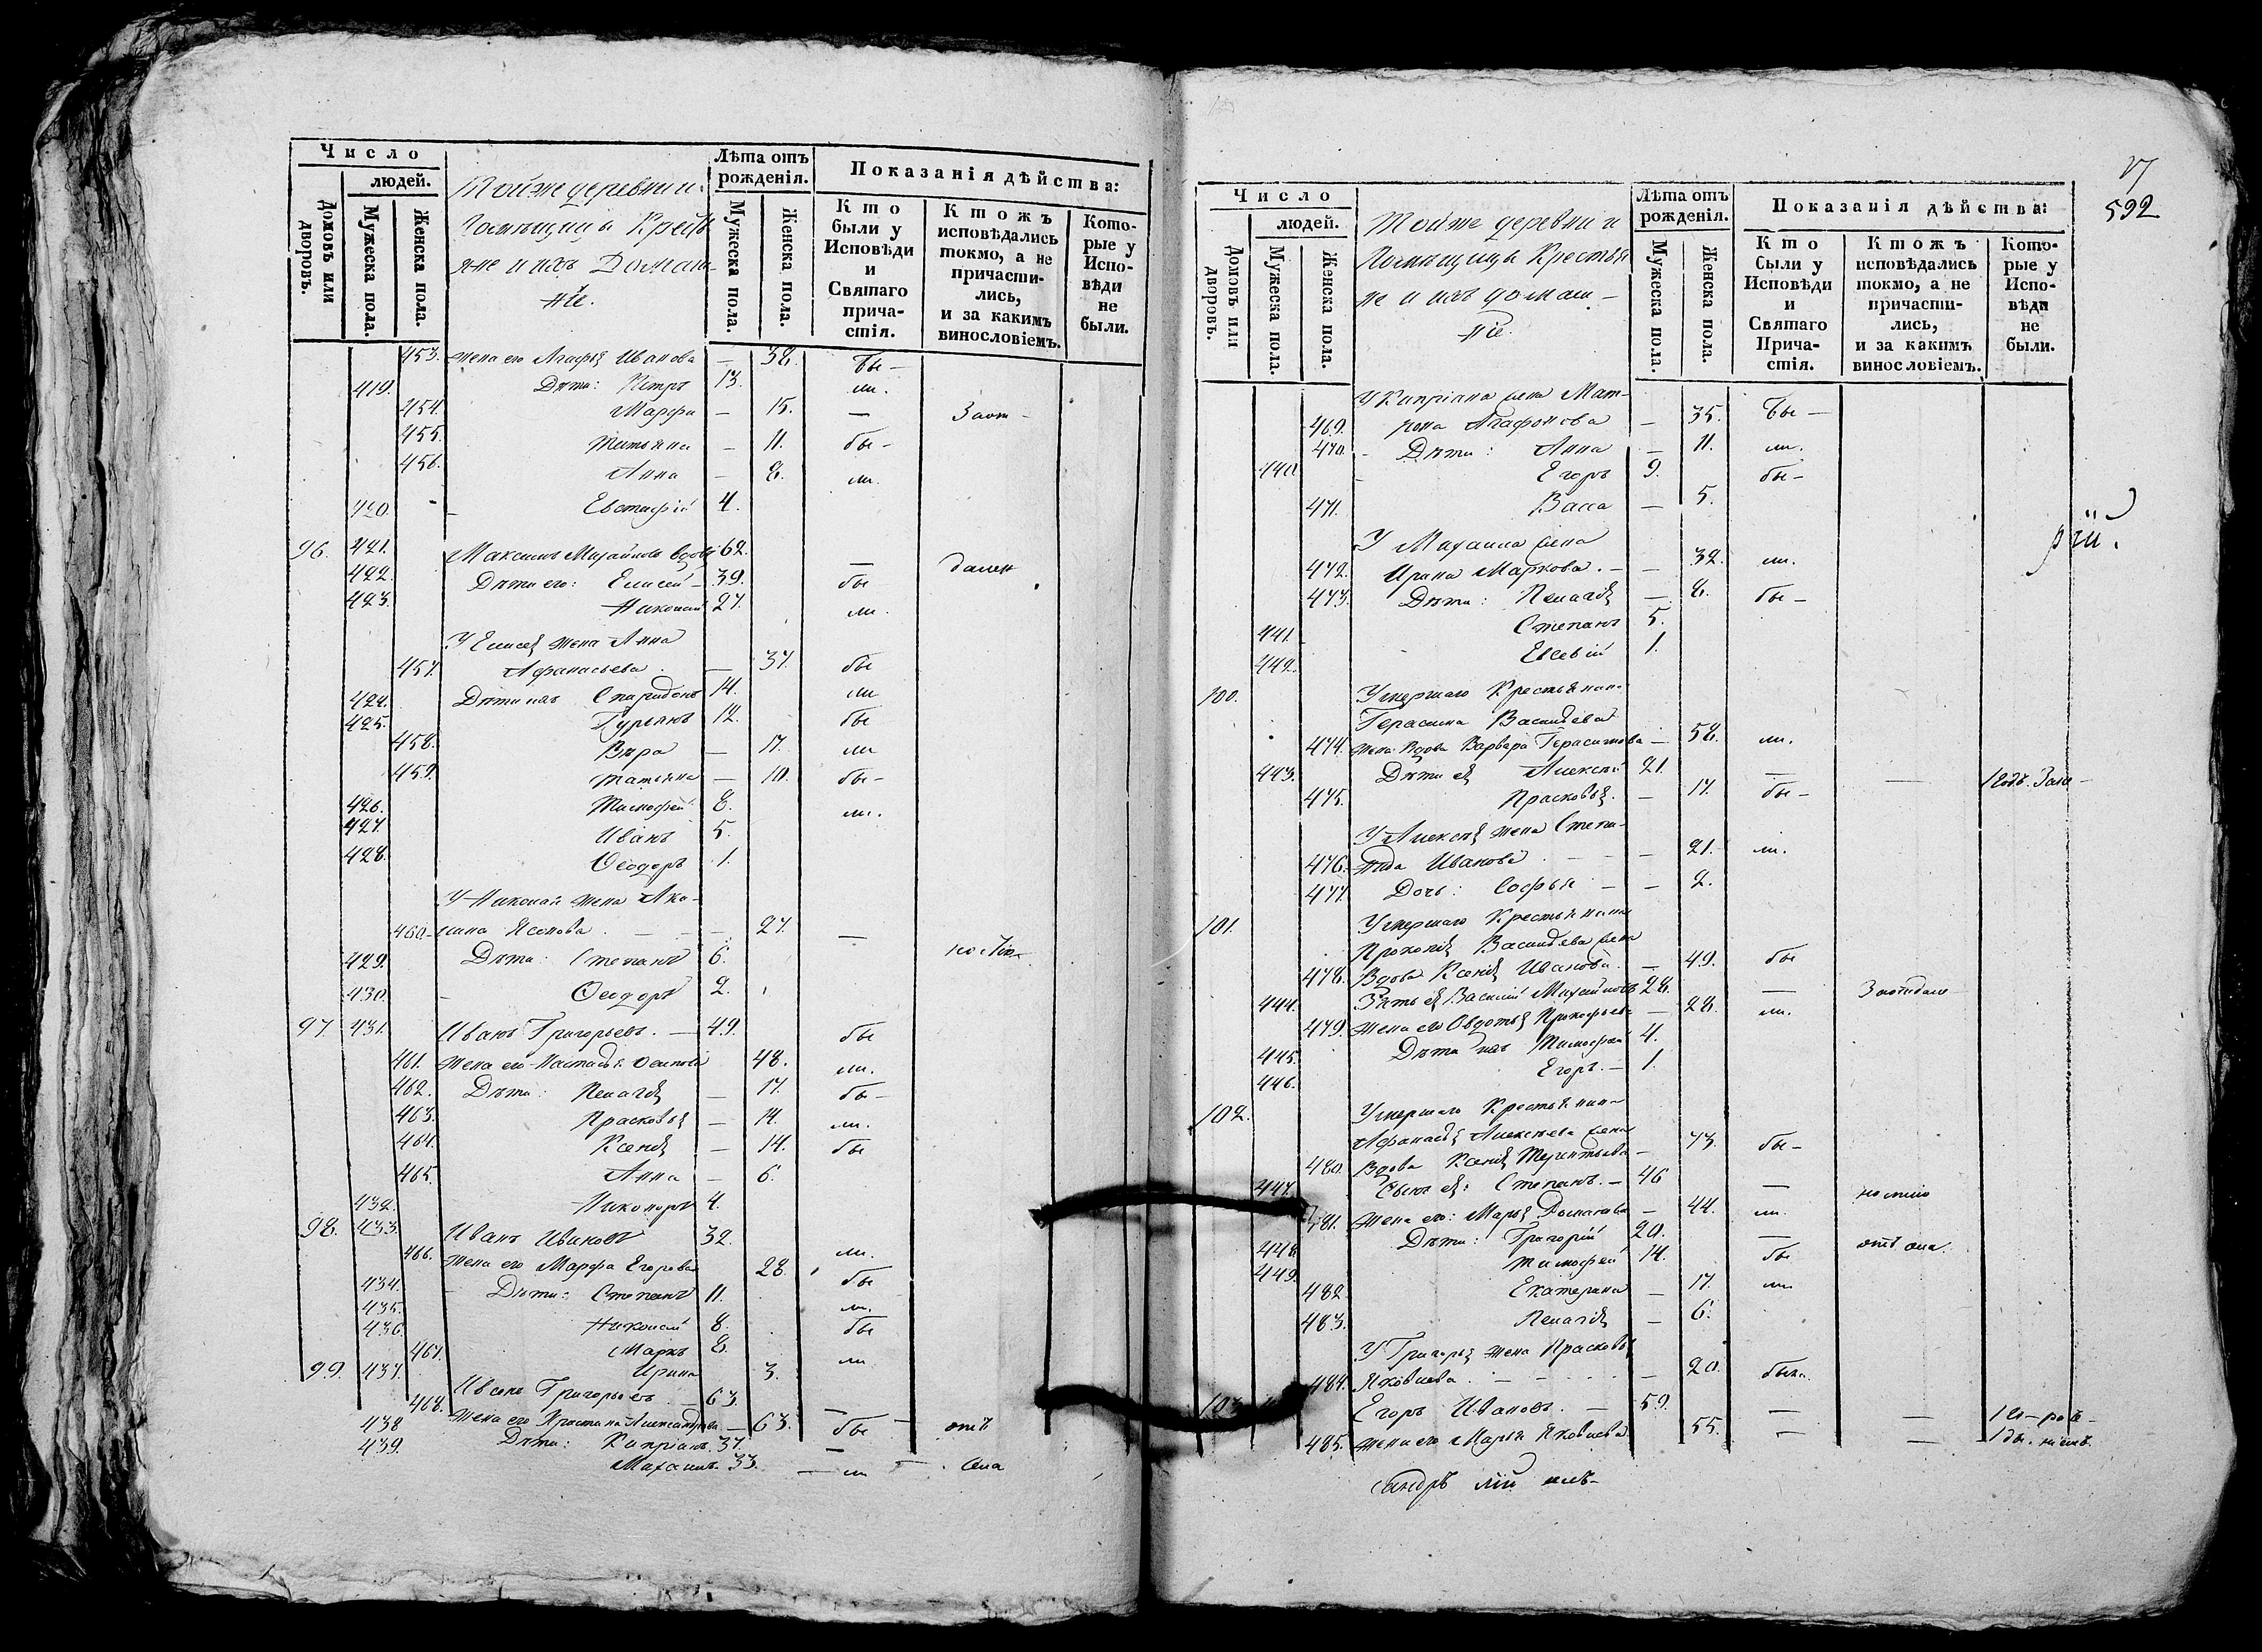 Число
людей.
Домовъ или дворовъ.
Мужеска пола.
Женска пола.
Тойже деревни и
Помѣщицы Кресть
яне и ихъ Домаш-
ніе.
Лѣта отъ рожденія.
Мужеска пола.
Женска пола.
Показанія дѣйства:
Кто были у Исповѣди и Святаго причастія.
Ктожъ исповѣдались токмо, а не причастились, и за какимъ винословіемъ.
Которые у Исповѣди не были.
453. жена его Агафья Иванова — 38. бы-
419. Дѣти: Петръ 13. ли.
454. Марфа — 15. —
455. Татьяна — 11. бы-
456. Анна — 8. ли.
420. Евстафій 4.
96. 421. Максимъ Михайловъ вдовъ 62. —
422. Дѣти его: Елисей 39. бы
423. Николай 27. ли.
У Елисея жена Анна
457. Афанасьева — 37. бы
424. Дѣти ихъ Спиридонъ 14. ли
425. Гурьянъ 12. бы
458. Вѣра — 17. ли
459. Татьяна — 10. бы-
426. Тимофей 8. ли.
427. Иванъ 5.
428. Ѳеодоръ 1.
У Николая жена Аку-
460. лина — 27. —
429. Дѣти: Степанъ 6.
430. Ѳеодоръ 2.
97. 431. Иванъ Григорьевъ. — 49. бы
461. жена его Настасья Осипова 48. ли.
462. Дѣти: Пелагія — 17. бы-
463. Прасковья — 14. ли.
464. Ксенія — 14. бы
465. Анна — 6.
432. Никоноръ 4.
98. 433. Иванъ Ивановъ 32. ли.
466. жена его Марфа Егорова 28. бы
434. Дѣти: Степанъ 11. ли.
435. Николай 8. бы
436. Маркъ 8. ли
467. Ирина 3.
99. 437. Григорьевъ — 63. —
468. жена его Александрова — 63. бы
438 Дѣти: Кипріанъ. 37. —
439. Михаилъ. 33. — ли
592
Число
людей.
Домовъ или дворовъ.
Мужеска пола.
Женска пола.
Тойже деревни и
Помѣщицы Крестья
не и ихъ домаш-
ніе.
Лѣта отъ рожденія.
Мужеска пола.
Женска пола.
Показанія дѣйства:
Кто были у Исповѣди и Святаго Причастія.
Ктожъ исповѣдались токмо, а не причастились, и за какимъ винословіемъ.
Которые у Исповѣди не были.
У Кипріана жена Мат-
469. рона Агафонова — 35. бы —
470. Дѣти: Анна — 11. ли.
440. Егоръ 9. бы-
471. Васса — 5.
У Михаила жена
472. Ирина Маркова. — 32. ли.
473. Дѣти: Пелагія — 8. бы-
441. Степанъ 5.
442. Евсевій 1.
100. Умершаго Крестьянина
Герасима Васильева
474. жена Вдова Варвара Герасимова — 58. ли.
443. Дѣти ея Алексѣй 21. — —
475. Прасковья. — 17. бы-
У Алексѣя жена Степа-
476. нида Иванова — 21. ли.
477. Дочь: Софья — 2.
101. Умершаго Крестьянина
Прокопія Васильева жена
478. Вдова Ксенія Иванова. — 49. бы
444. Зять ея Василій Михайловъ 28. —
479. жена его Овдотья Прокофьева — 28. ли.
445. Дѣти ихъ Тимофей 4.
446. Егоръ. — 1.
102. Умершаго Крестьянина
Афанасья Алексѣева жена
480. Вдова Ксенія Терентьева — 73. бы-
447. Сынъ ея: Степанъ. — 46 —
481. жена его: Марья — 44. ли.
448. Дѣти: Григорій 20. —
449. Тимофей 14. бы
482. Екатерина — 17. ли
483. Пелагія — 6.
У Григорья жена Прасковья
484. Яковлева — 20. была.
103. Егоръ Ивановъ. — 59. — —
485. жена его Марья Яковлева 55. — —